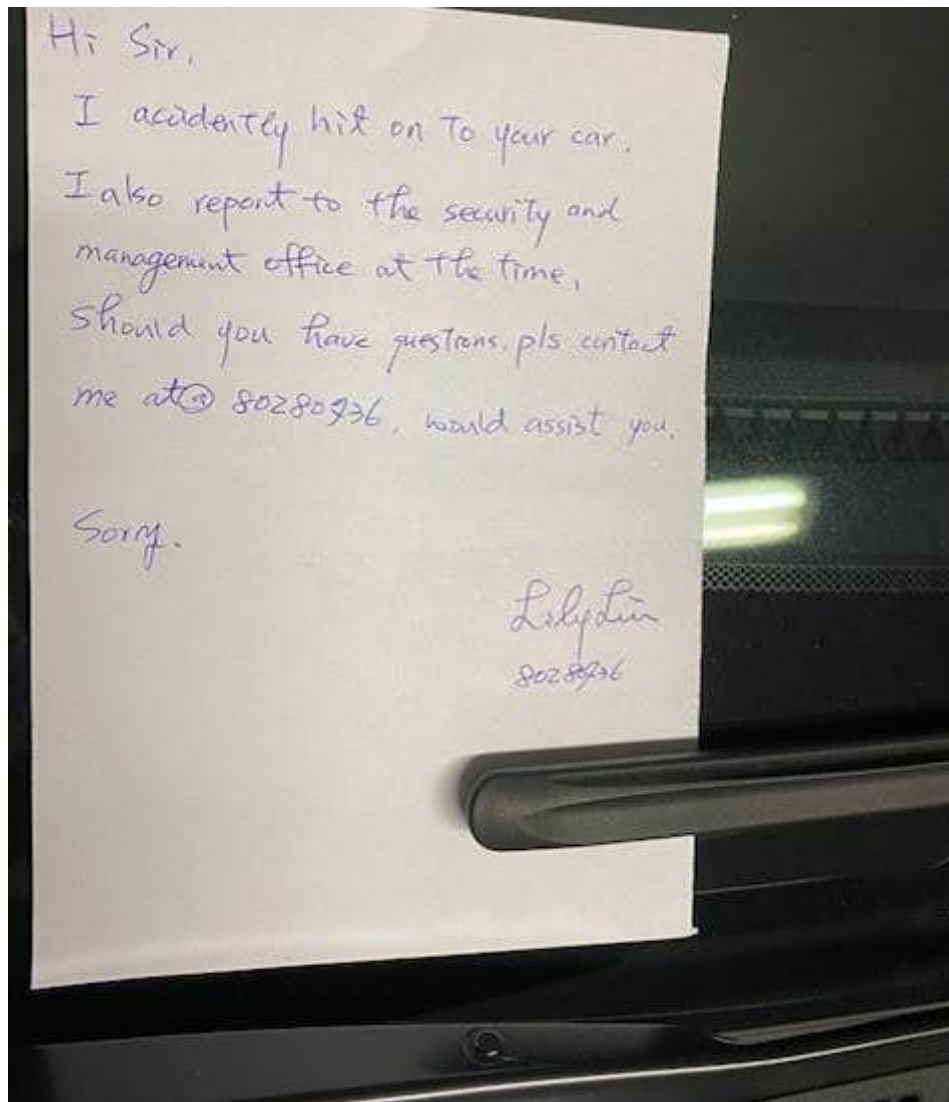 Hi Sir,
I acidently hit on to your car.
I also report to the security and
management office at the time,
should you have questions. pls contact
me at @ 80280936, would assist you.
Sorry.
Lily Lin
80280936